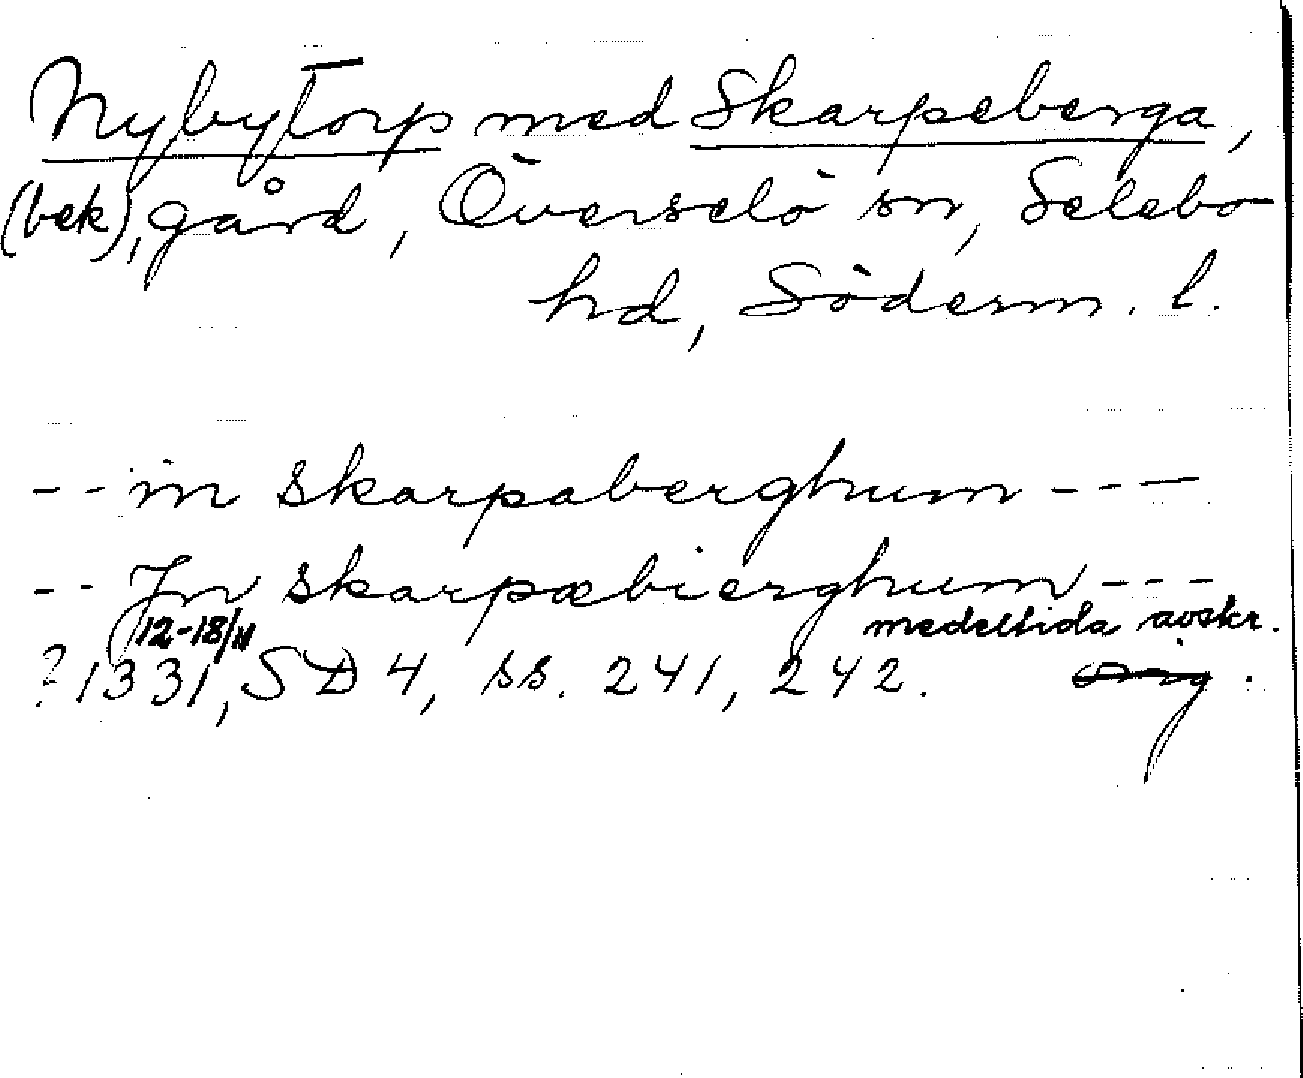 Nybytorp med Skarpeberga,
(bek), gård, Överselö sn, Selebo
hd, Söderm. l.
-- in skarpaberghum ---
-- Jn skarpæbierghum ---
12-18/11 medeltida avskr.
? 1331, SD 4, ss. 241, 242. orig.